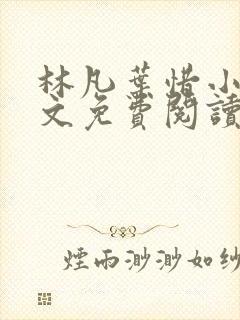 林凡葉惜小
文免費閱讀
煙雨渺渺如紗